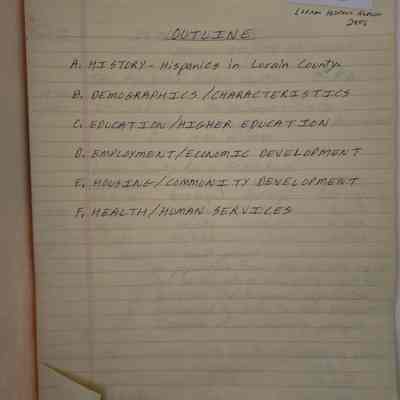 LORAIN HISPANIC
OUTLINE
A. HISTORY - Hispanics in Lorain County.
B. DEMOGRAPHICS / CHARACTERISTICS
C. EDUCATION / HIGHER EDUCATION
D. EMPLOYMENT / ECONOMIC DEVELOPMENT
E. HOUSING / COMMUNITY DEVELOPMENT
F. HEALTH / HUMAN SERVICES